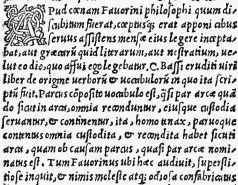 APud cœnam Fauorini philosophi quum di-
scubitum fuerat, cœptusq́; erat apponi cibus
seruus assistens mensæ eius legere incepta-
bat, aut græcarũ quid literarum, aut nostratium, ue-
lut eo die, quo affui ego legebatur, C. Bassi eruditi uiri
liber de origine uerborũ & uocabulorũ in quo ita scri-
ptũ fuit. Parcus cõposito uocabulo est, q̃si par arcæ quã
do sicut in arca, omnia reconduntur, eiusq́ue custodia
seruantur, & continentur, ita, homo tenax, paruoque
contentus omnia custodita, & recondita habet sicuti
arca, quam ob causam parcus, quasi par arcæ nomi-
natus est. Tum Fauorinus ubi hæc audiuit, supersti-
tiose inquit, & nimis moleste atq; odiosa confabricatus